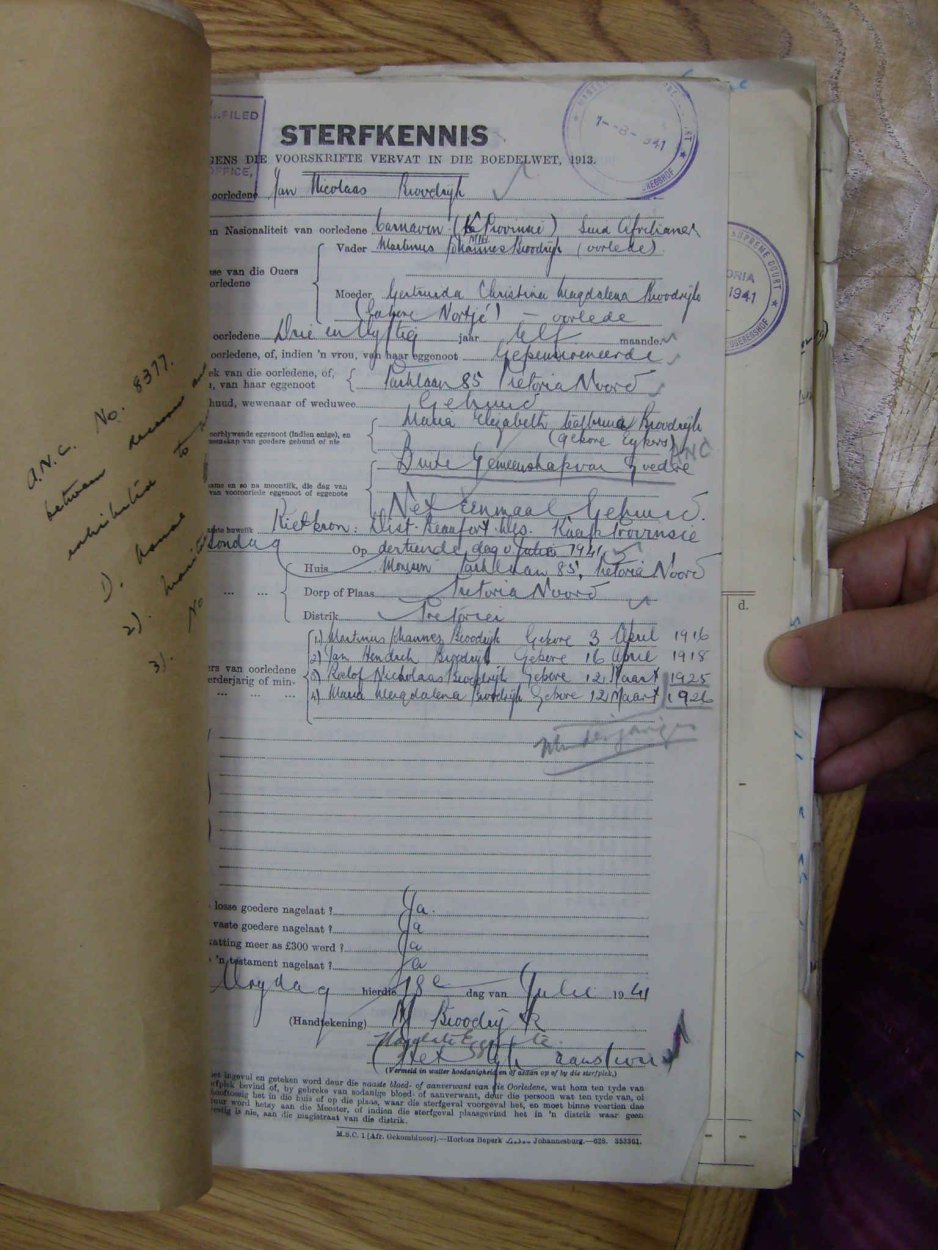 FILED
OFFICE,
7-8-1941
STERFKENNIS
GENS DIE VOORSKRIFTE VERVAT IN DIE BOEDELWET, 1913.
oorledene Jan Nicolaas Broodryk
en Nasionaliteit van oorledene Carnavon (Ka Provinsie) Suid Afrikaner
Vader Martinus Johannes Broodryk (oorlede)
se van die Ouers
oorledene
Moeder Gertruida Christina Magdalena Broodryk
(Gebore Nortje) – oorlede
oorledene Drie en Vyftig jaar elf maande
oorledene, of, indien 'n vrou, van haar eggenoot Gepensioneerde
ek van die oorledene, of,
, van haar eggenoot
Parklaan 85 Pretoria Noord
huud, wewenaar of weduwee Gehuud
Maria Elizabeth Broodryk
oorblywende eggenoot (indien enige), en
menskap van goedere gehuud of nie
(gebore Eykers)
ANC
Buite Gemeenskap van Goedere
name en so na moontlik, die dag van
van voormoriele eggenoot of eggenote
Net Eenmaal Gehuud.
ste huwelik Rietkron: Dist. Beaufort Wes. Kaap Provinsie
Sondag Op dertiende dag Julie 1941
Huis Parklaan 85, Pretoria Noord
Dorp of Plaas Pretoria Noord
Distrik Pretoria
1) Martinus Johannes Broodryk Gebore 3 April 1916
2) Jan Hendrik Broodryk Gebore 16 April 1918
ers van oorledene
erderjarig of min-
3) Roelof Nicholaas Broodryk Gebore 12 Maart 1925
4) Maria Magdalena Broodryk Gebore 12 Maart 1926
Minderjariges
losse goedere nagelaat ? Ja.
vaste goedere nagelaat ? Ja
atting meer as £300 werd ? Ja
'n testament nagelaat ? Ja
Vrydag hierdie 18e dag van Julie 1941
(Handtekening) M Broodryk
(Vermeld in watter hoedanigheid en of aldan op of by die sterfplek.)
et ingevul en geteken word deur die naaste bloed- of aanverwant van die Oorledene, wat hom ten tyde van
rfplek bevind of, by gebreke van sodanige bloed- of aanverwant, deur die persoon wat ten tyde van, of
hoofttoesig het in die huis of op die plaas, waar die sterfgeval voorgeval het, en moet binne veertien dae
uur word hetsy aan die Meester, of indien die sterfgeval plaasgevind het in 'n distrik waar geen
estig is nie, aan die magistraat van die distrik.
M.B.C. 1 [Afr. Gekombineer].—Hortors Beperk Johannesburg.—628. 353361.
A.N.C. No. 8377.
between deceased and
to
1).
2).
No
3).
SUPREME COURT
ORIA
1941
d.